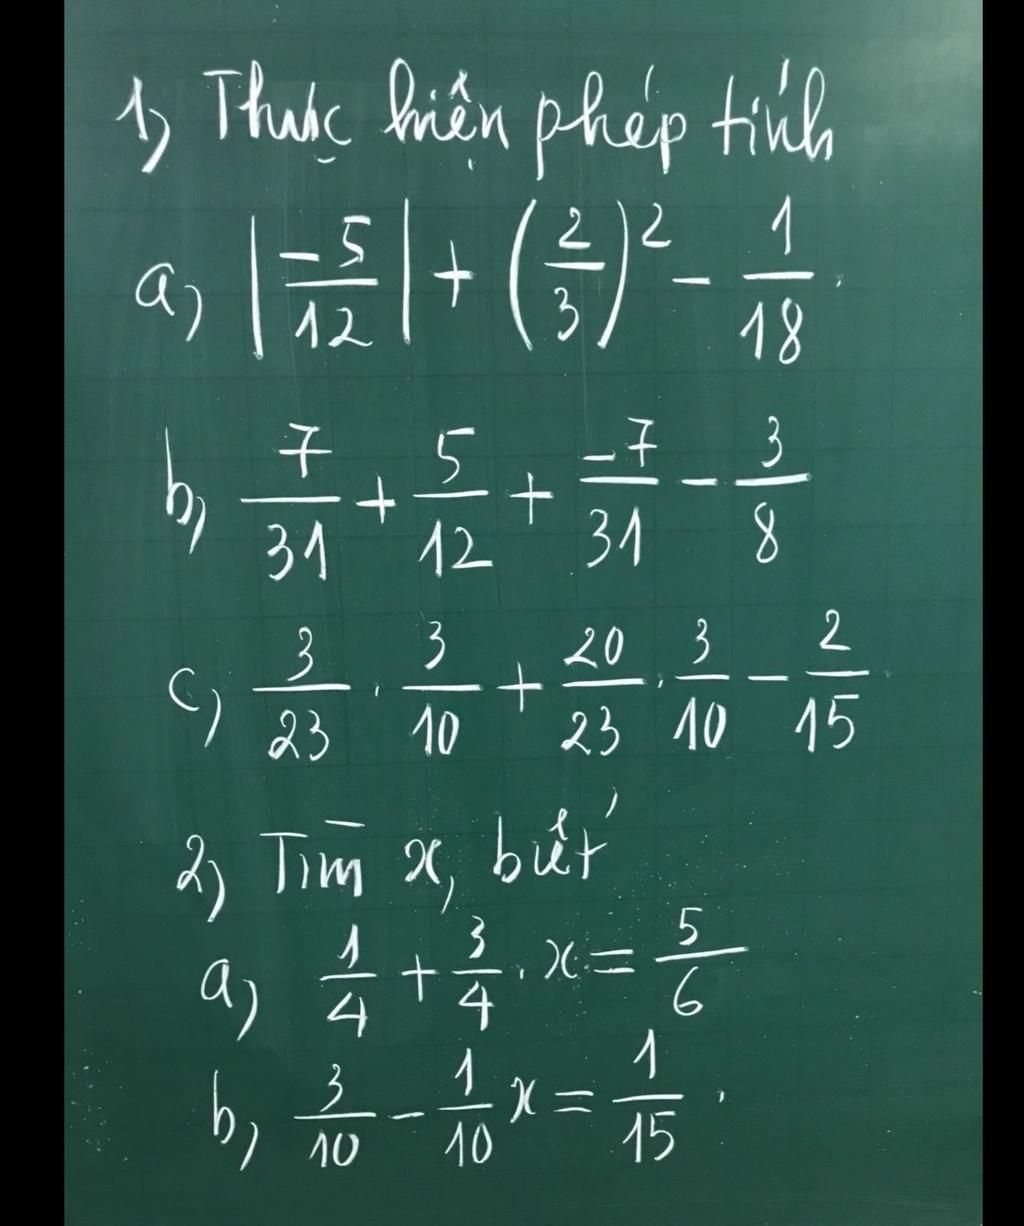 1) Thực hiện phép tính
a) |-5/12| + (2/3)² - 1/18.
b) 7/31 + 5/12 + -7/31 - 3/8
c) 3/23 . 3/10 + 20/23 . 3/10 - 2/15
2) Tìm x, biết
a) 1/4 + 3/4 . x = 5/6
b) 3/10 - 1/10 x = 1/15.